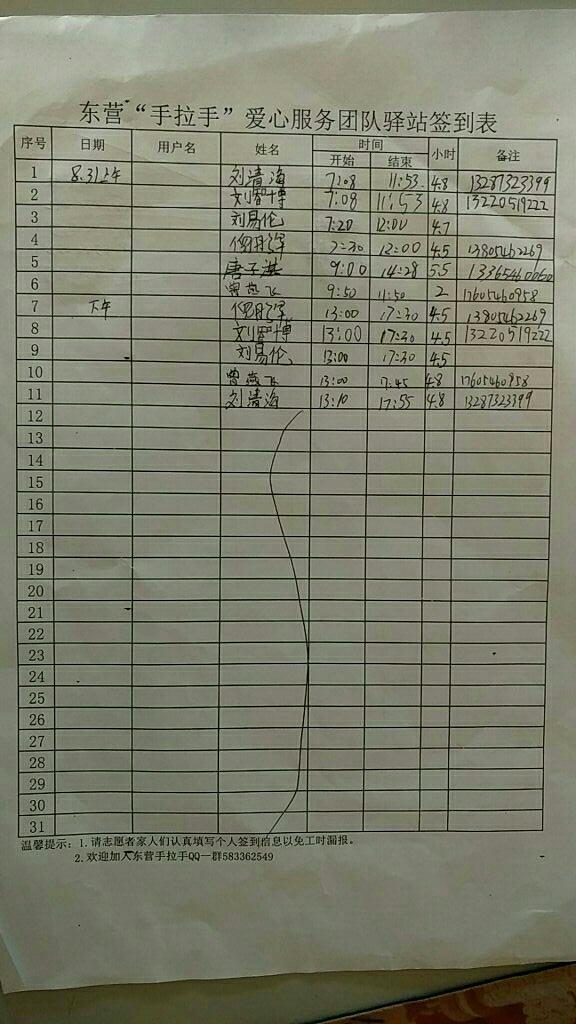 东营“手拉手”爱心服务团队驿站签到表
序号 日期 用户名 姓名 时间 小时 备注
开始 结束
1 8.31上午 刘清海 7:08 11:53 4.8 13287323399
2 刘智博 7:08 11:53 4.8 13220519222
3 刘易伦 7:20 12:00 4.7
4 7:30 12:00 4.5 13805462269
5 唐子淇 9:00 14:28 5.5 13365460060
6 曾燕飞 9:50 11:50 2 17605460958
7 下午 13:00 17:30 4.5 13805462269
8 刘智博 13:00 17:30 4.5 13220519222
9 刘易伦 13:00 17:30 4.5
10 曾燕飞 13:00 17:45 4.8 17605460958
11 刘清海 13:10 17:55 4.8 13287323399
12
13
14
15
16
17
18
19
20
21
22
23
24
25
26
27
28
29
30
31
温馨提示：1.请志愿者家人们认真填写个人签到信息以免工时漏报。
2.欢迎加入东营手拉手QQ一群583362549